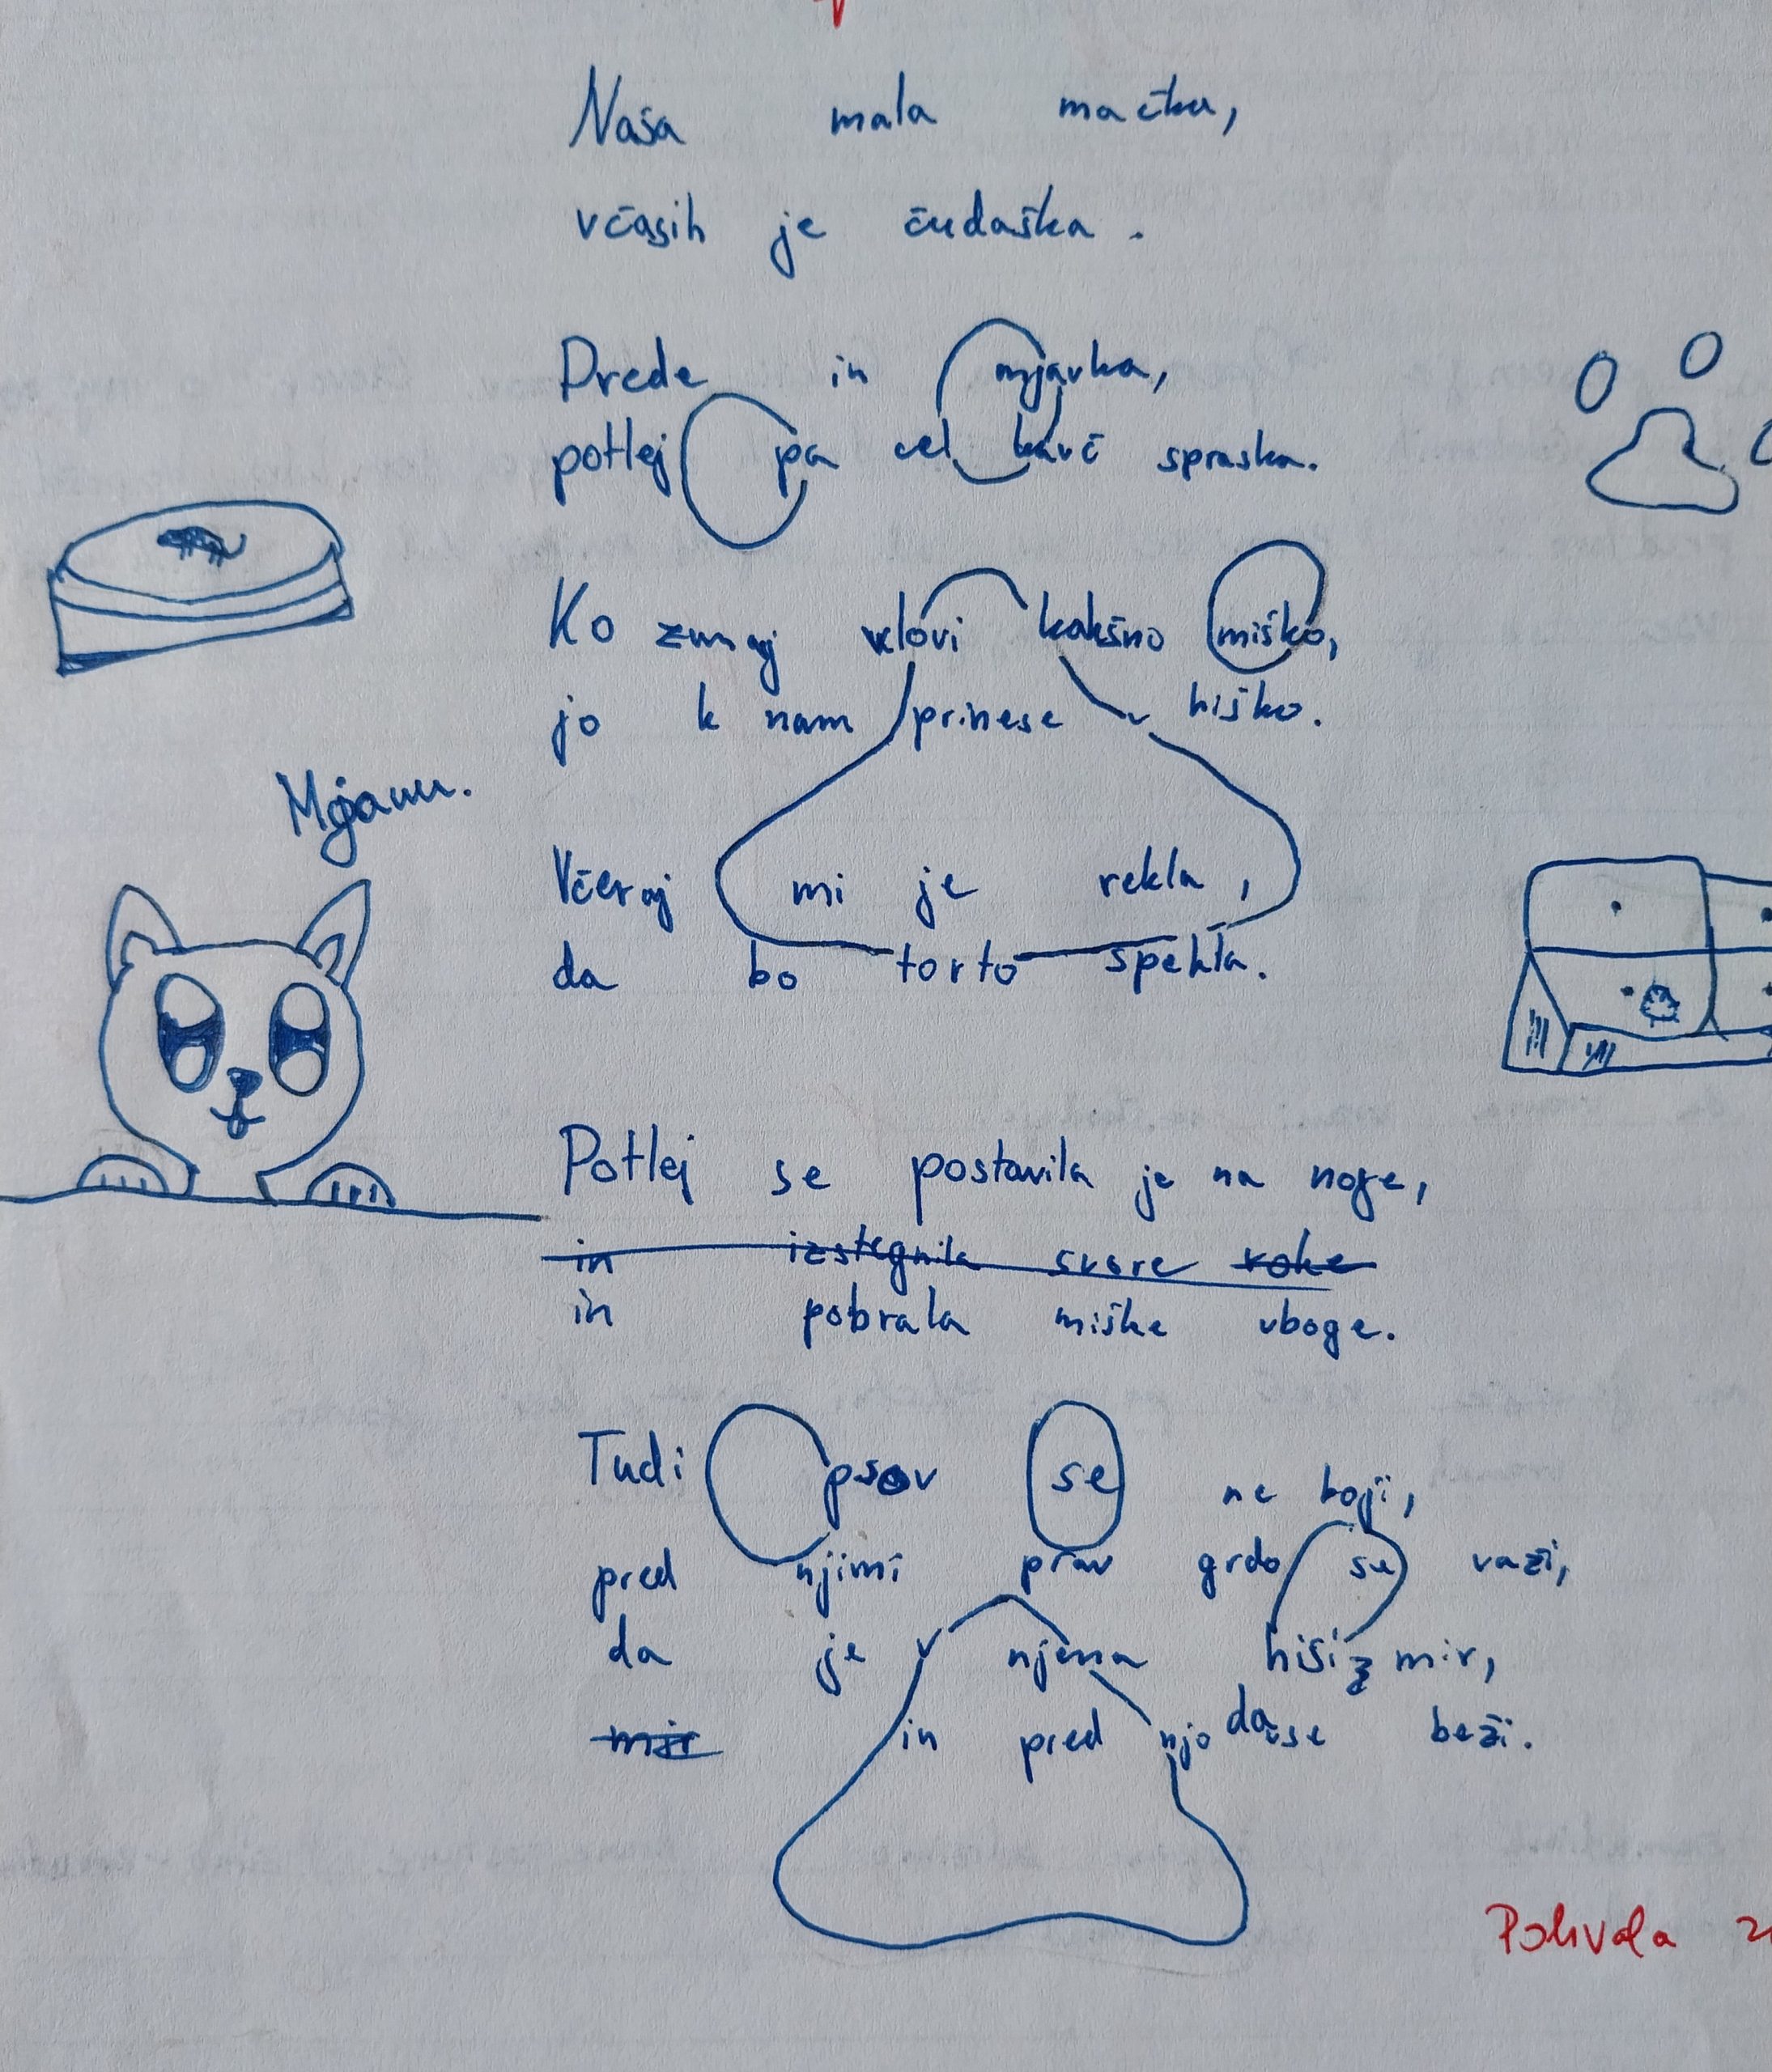 Naša mala mačka,
včasih je čudaška.
Prede in mjavka,
potlej pa cel kavč spraska.
Ko zunaj vlovi kakšno miško,
jo k nam prinese v hiško.
Mjauu.
Včeraj mi je rekla,
da bo torto spekla.
Potlej se postavila je na noge,
in izstegnila svoje roke
in pobrala miške uboge.
Tudi psov se ne boji,
pred njimi prav grdo se važi,
da je v njena hiši mir,
mir in pred njo da se beži.
Pohvala